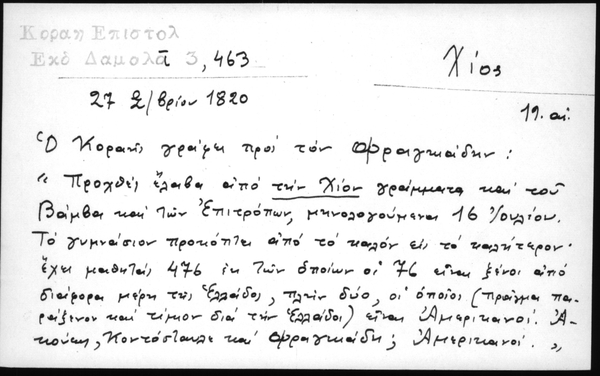 Κοραη Επιστολ
Εκδ Δαμαλᾶ 3, 463
Χίος
27 2/βρίου 1820
19. αἰ.
Ὁ Κοραῆς γράφει πρὸς τὸν Φραγκιάδην :
"Προχθὲς ἔλαβα ἀπὸ τὴν Χίον γράμματα καὶ τοῦ
Βάμβα καὶ τῶν Ἐπιτρόπων, μηνολογούμενα 16 Ἰουλίου.
Τὸ γυμνάσιον προκόπτει ἀπὸ τὸ καλὸν εἰς τὸ καλήτερον·
ἔχει μαθητὰς 476 ἐκ τῶν ὁποίων οἱ 76 εἶναι ξένοι ἀπὸ
διάφορα μέρη τῆς Ἑλλάδος, πλὴν δύο, οἱ ὁποῖοι (πρᾶγμα πα-
ράξενον καὶ τίμιον διὰ τὴν Ἑλλάδα) εἶναι Ἀμερικανοί. Ἀ-
κούεις, Κοντόσταυλε καὶ Φραγκιάδη; Ἀμερικανοί. "